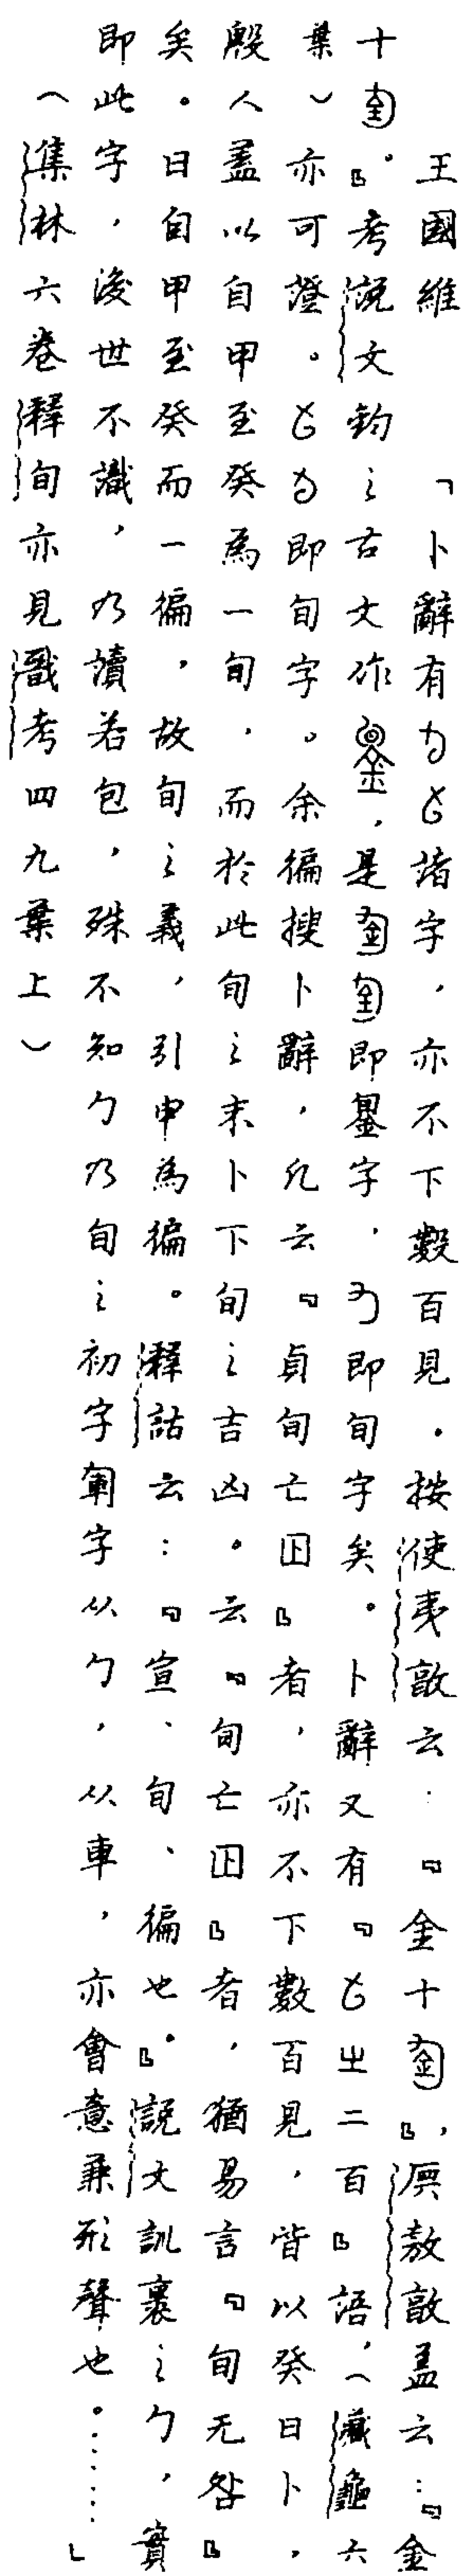 王國維　「卜辭有諸字，亦不下數百見．按使夷敦云：『金十』，屄敖敦蓋云：『金
十』。考說文鈞之古文作，是即鋆字，即旬字矣。卜辭又有『㞢二百』語，（藏龜六
葉）亦可證。即旬字。余徧搜卜辭，凡云『貞旬亡囚』者，亦不下數百見，皆以癸日卜，
殷人蓋以自甲至癸為一旬，而於此旬之末卜下旬之吉凶。云『旬亡囚』者，猶易言『旬无咎』
矣。日自甲至癸而一徧，故旬之義，引申為徧。釋詁云：『宣、旬、徧也』。說文訓裹之勹，實
即此字，後世不識，乃讀若包，殊不知勹乃旬之初字軍字从勹，从車，亦會意兼形聲也。……」
（集林六卷釋旬亦見戩考四九葉上）